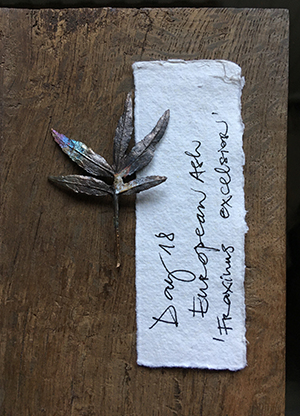 Day 18
European Ash
'Fraxinus excelsior'